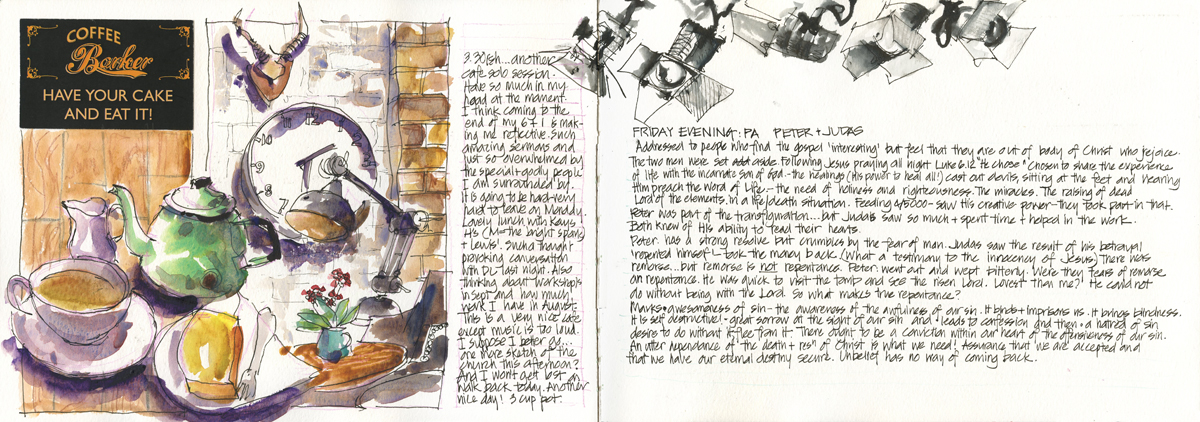 COFFEE
Barker
HAVE YOUR CAKE
AND EAT IT!
10
9
8
7
3.30ish... another
cafe solo session.
Have so much in my
head at the moment.
I think coming to the
end of my 6 + 1 is mak-
ing me reflective. Such
amazing sermons and
just so overwhelmed by
the special + godly people
I am surrounded by.
It is going to be hard - very
hard to leave on Monday.
Lovely lunch with Kays,
H's (M = the bright spark)
+ Lewis'. Such a thought
provoking conversation
with DL last night. Also
thinking about workshops
in Sept and how much
work I have in August.
This is a very nice cafe
except music is too loud.
I suppose I better go...
one more sketch of the
church this afternoon?
And I won't get lost on
walk back today. Another
nice day! 3 cup pot.
FRIDAY EVENING: PA PETER + JUDAS
Addressed to people who find the gospel 'interesting' but feel that they are out of body of Christ who rejoice.
The two men were set aside following Jesus praying all night Luke 6.12 "He chose" Chosen to share the experience
of life with the incarnate son of God - the healings (His power to heal all!) cast out devils, sitting at the feet and hearing
Him preach the Word of Life - the need of holiness and righteousness. The miracles. The raising of dead
Lord of the elements in a life/death situation. Feeding 4/5000 - saw His creative power - they took part in that.
Peter was part of the transfiguration... but Judas saw so much + spent time + helped in the work.
Both knew of His ability to read their hearts.
Peter has a strong resolve but crumbles by the fear of man. Judas saw the result of his betrayal
repented himself - took the money back (What a testimony to the innocency of Jesus) There was
remorse... but remorse is not repentance. Peter: went out and wept bitterly. Were they tears of remorse
or repentance. He was quick to visit the tomb and see the risen Lord. Lovest thou me? He could not
do without being with the Lord. So what makes true repentance?
Marks • awesomeness of sin - the awareness of the awfulness of our sin. It binds + imprisons us. It brings blindness.
It is self destructive! - great sorrow at the sight of our sin and • leads to confession and then • a hatred of sin
desire to do without it + flee from it. There ought to be a conviction within our heart of the offensiveness of our sin.
An utter dependance of the death + resⁿ of Christ is what we need! Assurance that we are accepted and
that we have our eternal destiny secure. Unbelief has no way of coming back.